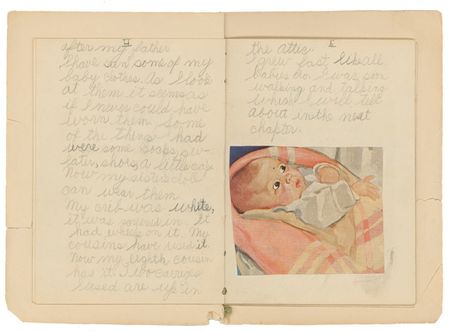 II
after my father
I have san some of my
baby clotes. As I look
at them it seems as
if I never could have
worn them. Some
of the things I had
were some soaks, sw-
eater, shoes, a little cap
Now my sister
can wear them
My crib was white,
it was in it. It
had wheels on it. My
cousins have used it.
Now my eighth cousin
has it. Two carriges
I used are up in
the attic
I grew fast like all
babies do. I was son
walking and talking
which I will tell
about in the next
chapter.